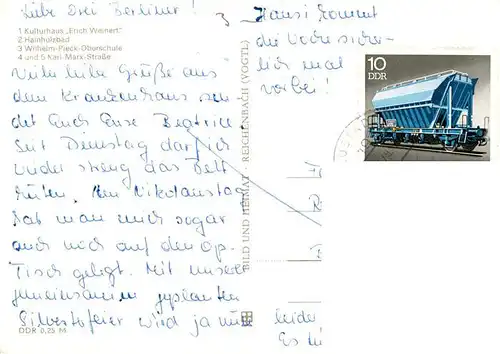 Liebe Drei Berliner!
1 Kulturhaus „Erich Weinert"
2 Hainholzbad
3 Wilhelm-Pieck-Oberschule
4 und 5 Karl-Marx-Straße
Viele liebe Grüße aus
dem Krankenhaus sen-
det Euch Eure Beatrice
Seit Dienstag darf ich
wieder streng das Bett
hüten. Am Nikolaustag
hat man mich sogar
auch noch auf den Op-
Tisch gelegt. Mit unserer
gemeinsamen geplanten
Silvesterfeier wird ja nun
DDR 0,25 M
BILD UND HEIMAT · REICHENBACH (VOGTL)
Hansi kommt
die Woche sicher-
lich mal
vorbei!
10
DDR
leide
Es